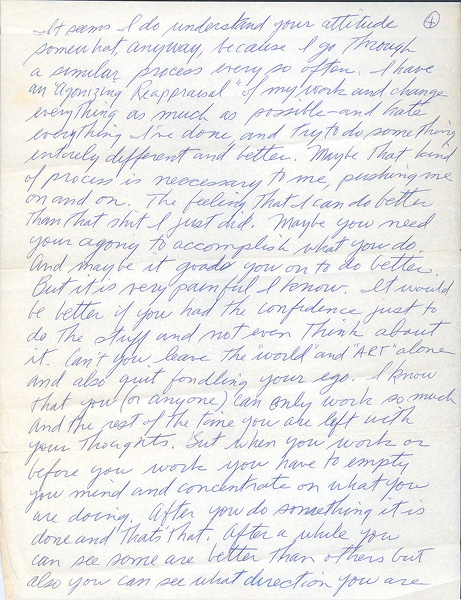 It seems I do understand your attitude
4
somewhat, anyway, because I go through
a similar process every so often. I have
an "Agonizing Reappraisal" of my work and change
everything as much as possible - and hate
everything I've done, and try to do something
entirely different and better. Maybe that kind
of process is necessary to me, pushing me
on and on. The feeling that I can do better
than that shit I just did. Maybe you need
your agony to accomplish what you do.
And maybe it goads you on to do better.
But it is very painful I know. It would
be better if you had the confidence just to
do the stuff and not even think about
it. Can't you leave the "world" and "ART" alone
and also quit fondling your ego. I know
that you (or anyone) can only work so much
and the rest of the time you are left with
your thoughts. But when you work or
before you work you have to empty
you mind and concentrate on what you
are doing. After you do something it is
done and that's that. After a while you
can see some are better than others but
also you can see what direction you are